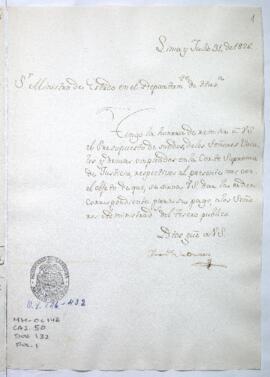 1
Lima y Julio 31, de 1826.
Sr. Ministro de Estado en el Departamto. de Hacda.
Tengo la honra de remitir a V.S.
el Presupuesto de sueldos de los Señores Vocales
y demas empleados en la Corte Suprema
de Justicia, respectivos al presente mes con
el objeto de que se sirva V.S. dar la orden
correspondiente para su pago a los Señores
Administrad. del tesoro publico.
Dios gue. a V.S.
O.L. 146-432
MH-OL146
CAJ. 50
DOC 132
FOL. 1